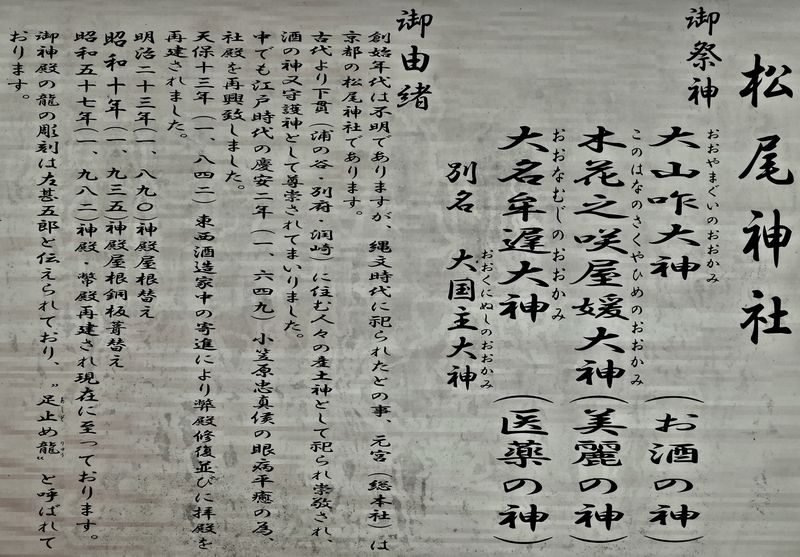 松尾神社
御祭神
おおやまぐいのおおかみ
大山咋大神 (お酒の神)
このはなのさくやひめのおおかみ
木花之咲屋媛大神 (美麗の神)
おおなむじのおおかみ
大名牟遅大神 (医薬の神)
おおくにぬしのおおかみ
別名 大国主大神
御由緒
創始年代は不明でありますが、縄文時代に祀られたとの事、元宮(総本社)は
京都の松尾神社であります。
古代より下貫(浦の谷・別府・潤崎)に住む人々の産土神として祀られ崇敬され、
酒の神又守護神として尊崇されてまいりました。
中でも江戸時代の慶安二年(一、六四九)小笠原忠真侯の眼病平癒の為、
社殿を再興致しました。
天保十三年(一、八四二)東西酒造家中の寄進により弊殿修復並びに拝殿を
再建されました。
明治二十三年(一、八九〇)神殿屋根替え
昭和十年(一、九三五)神殿屋根銅板葺替え
昭和五十七年(一、九八二)神殿・幣殿再建され現在に至っております。
御神殿の龍の彫刻は左甚五郎と伝えられており、〝足止め龍〟と呼ばれて
おります。